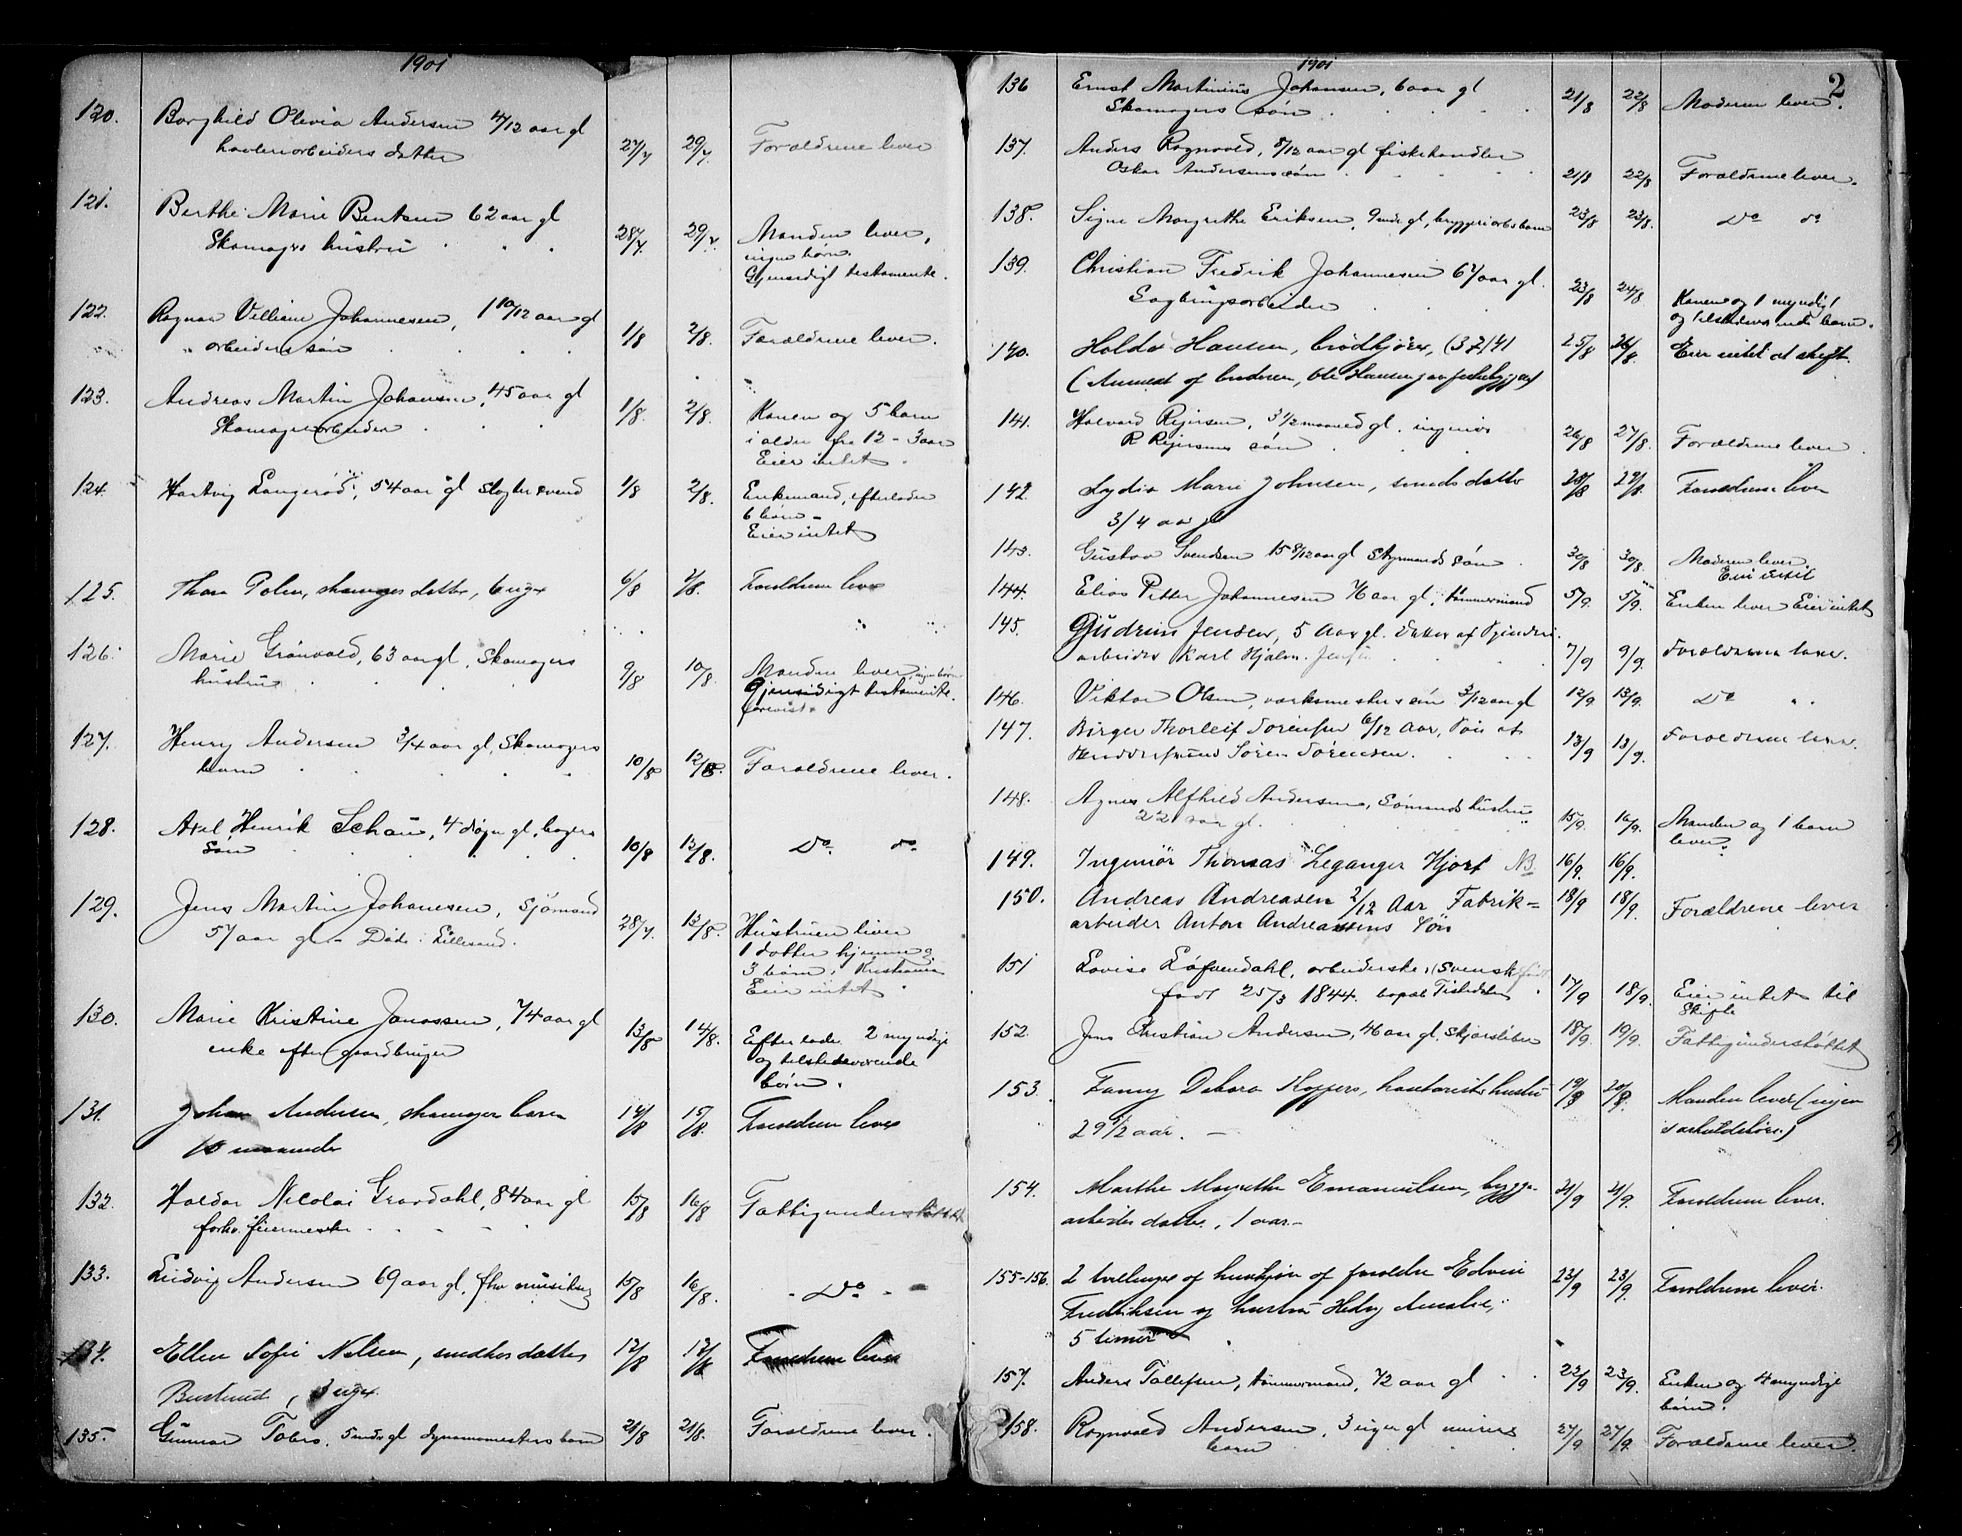 1901
120. Borghild Olivia Andersen 4/12 aar gl 27/7 29/7. Forældrene lever
havnearbeiders datter
121. Berthe Marie Bentsen 62 aar gl 28/7 29/7. Manden lever,
Skomagers hustru ingen børn.
Gjensidigt testamente.
122. Ragnar Villiam Johannesen, 1 10/12 aar gl 1/8 2/8. Forældrene lever.
arbeiders søn
123. Andreas Martin Johansen, 45 aar gl 1/8. 2/8. Konen og 5 børn
Skomagerarbeider i alder fra 12 - 3 aar
Eier intet.
124. Hartvig Langerød, 54 aar gl slagtersvend 1/8 2/8. Enkemand, efterlader
6 børn -
Eier intet
125. Thora Polen, skomagers datter, 6 uger 6/8 7/8. Forældrene lever
126. Marie Grønvold, 63 aar gl, Skomagers 9/8 10/8. Manden lever ingen børn
hustru Gjensidigt testamente
forevist
127. Henry Andersen 3/4 aar gl, Skomagers 10/8 12/8. Forældrene lever.
barn
128. Axel Henrik Schau, 4 døgn gl, bagers 10/8 13/8. Do do
søn
129. Jens Martin Johanesen, Sjømand 28/7. 13/8. Hustruen lever
57 aar gl - Død i Lillesand. 1 datter hjemme og
3 børn i Kristiania
Eier intet
130. Marie Kristine Janassen, 74 aar gl 13/8 14/8. Efterlader 2 myndige
enke efter gaardbruger og tilstedeværende
børn.
131. Johan Andersen, skomager barn 14/8 15/8. Forældrene lever
10 maaneder
132. Haldor Nicolai Grandahl, 84 aar gl 15/8 16/8 Fattigunderstøttet
forhv. feiermester
133. Ludvig Andersen 69 aar gl. fhv musiker 15/8 16/8. - Do -
134. Ellen Sofie Nilsen, smeds datter 12/8 12/8 Forældrene lever
3 uger
135. Gunnar Tobro, 5 mdr gl dynamomesters barn 21/8 21/8. Forældrene lever.
1901
2
136 Ernst Martinius Johansen, 6 aar gl 21/8 22/8 Moderen lever.
Skomagers søn
137. Anders Ragnvald, 8/12 aar gl fiskehandler 21/8 22/8 Forældrene lever.
Oskar Andersens søn
138. Signe Margrethe Eriksen, 9 mdr gl, bryggeriarbs barn 23/8 23/8. Do do
139. Christian Fredrik Johannesen 67 aar gl. 23/8 24/8 Konen og 1 myndig
Sagbrugsarbeider og tilstedeværende barn.
140. Haldor Hansen, brødkjører, (37) 41 25/8 26/8. Eier intet at skifte
(Anmeldt af broderen, Ole Hansen)
141. Halvard Reiersen, 3 1/2 maaned gl. ingeniør 26/8 27/8. Forældrene lever.
R Reiersens søn
142. Lydia Marie Johnsen, smeds datter 28/8 29/8. Forældrene lever
3/4 aar gl
143. Gustav Svendsen 15 8/12 aar gl Styrmands søn 30/8 30/8. Moderen lever
Eier intet
144. Elias Petter Johannesen 76 aar gl, tømmermand 5/9. 5/9. Enken lever Eier intet
145. Gudrun Jensen, 5 Aar gl. Datter af Spinderi-
arbeider Karl Hjalm. Jensen 7/9 9/9. Forældrene lever.
146. Viktor Olsen, værksmesters søn 3/12 aar gl 12/9 13/9. Do "
147. Birger Thorleif Sørensen 6/12 Aar, Søn af 13/9 13/9. Forældrene lever.
Søren Sørensen.
148. Agnes Alfhild Andersen, Sømands hustru 15/9. 16/9. Manden og 1 barn
22 aar gl. lever.
149. Ingeniør Thomas Leganger Hjort NB 16/9. 16/9.
150. Andreas Andreasen 2/12 Aar Fabrik= 18/9 18/9. Forældrene lever
arbeider Anton Andreasens Søn
151 Lovise Løfvendahl, arbeiderske, (svensk født
født 25/3 1844. bopæl Tistedalen 17/9 18/9. Eier intet til
Skifte
152. Jens Christian Andersen, 46 aar gl. Skjærsliber 18/9. 19/9. Fattigunderstøttet
153. Fanny Debora Hoppers, kontorists hustru 19/9 20/9. Manden lever (ingen
29 1/2 aar. - særkuldebørn)
154. Marthe Margrethe Emanuelsen, bygge- 21/9 21/9. Forældrene lever.
arbeiders datter, 1 aar -
155-156. 2 tvillinger af hunkjøn af forældre Edvin 23/9 23/9. Forældrene lever.
Fredriksen og hustru Hedvig Amalie,
5 timer
157. Anders Tollefsen, tømmermand, 72 aar gl 22/9 23/9. Enken og 4 myndige
børn.
158. Ragnvald Andersen, 3 uger gl murers 27/9 27/9. Forældrene lever.
barn